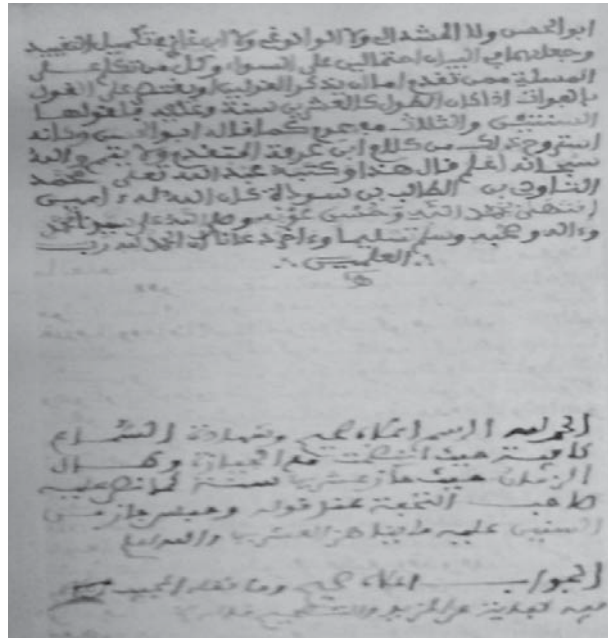 ابو الحسن ولا المشدالي ولا الوانوغي ولا ابن غازي تكميل التقييد
وجعلهما في البيان احتمالين على السواء وكل من تكلم على
المسئلة ممن تقدم اما ان يذكر القولين او يقتصر على القول
بالفوات اذا كان الطول كالعشرين سنة وعليه فلقولها
السنتين والثلاث مع كما قاله ابو الحسن وكانه
استروح ذلك من كلام ابن عرفة المتقدم ولا يتم والله
سبحانه اعلم قال هذا وكتبه عبد الله تعلى محمد
التاودي بن الطالب بن سودة كان الله له ءامين
انتهى بحمد الله وحسن عونه وصلى الله على سيدنا محمد
وءاله وصحبه وسلم تسليما وءاخر دعوانا ان الحمد لله رب
العلمين
الحمد لله الرسم اعلاه صحيح وشهادة السماع
كافية حيث انضمت مع الحيازة وطال
الزمان حيث جاز عشرين سنة كما نص عليه
صاحب التحفة عند قوله وحبس جاز من
السنين عليه ما يناهز العشرين والله اعلم
الجواب اعلاه صحيح وما نقله المجيب
فيه كفاية عن المزيد والتصحيح